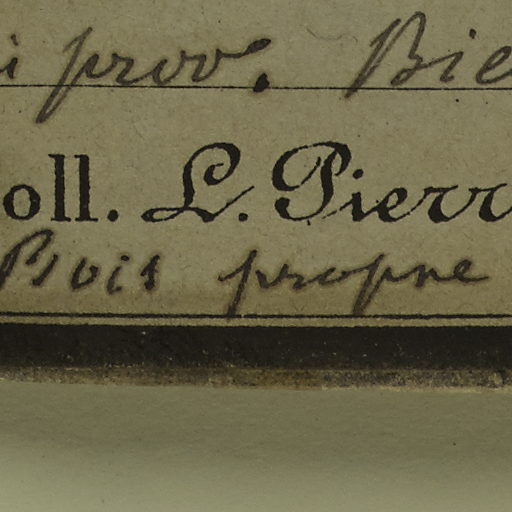 i prov. Bie
oll. L. Pierr
Bois propre